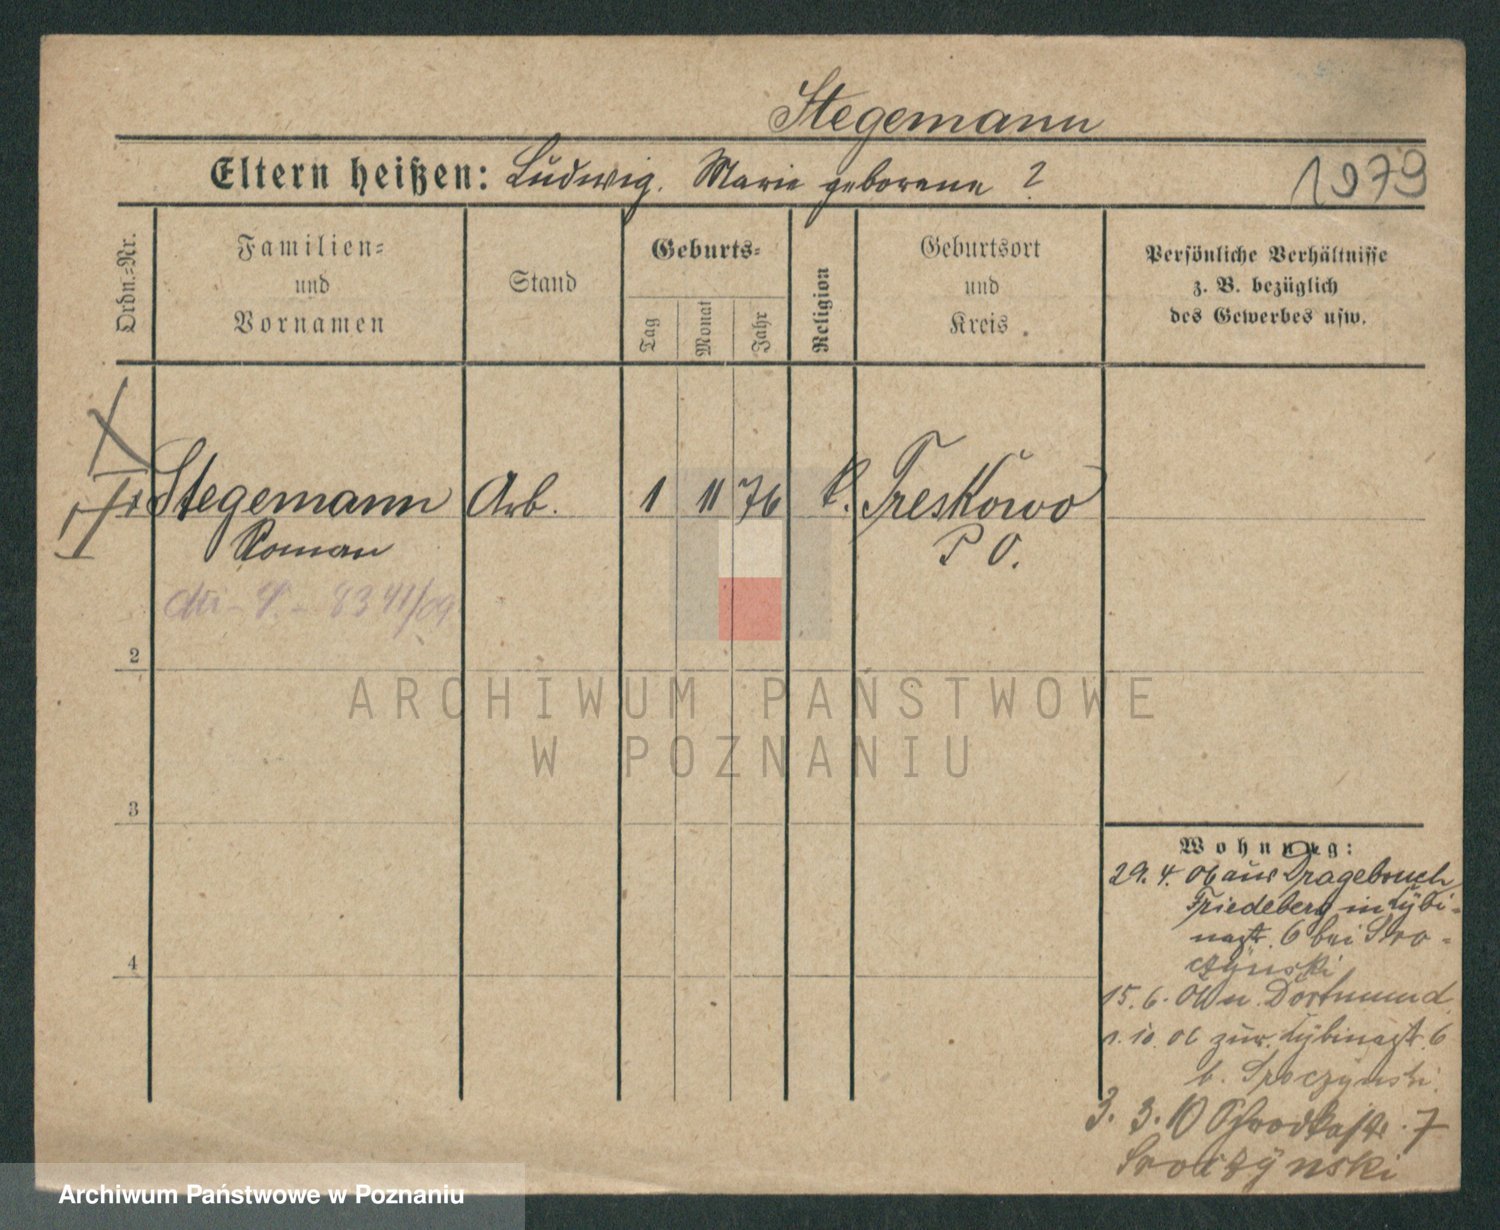 Stegemann
Eltern heißen: Ludwig. Marie geborene ?
1979
Ordn.=Nr.
Familien=
und
Vornamen
Stand
Geburts=
Tag
Monat
Jahr
Religion
Geburtsort
und
Kreis
Persönliche Verhältnisse
z. B. bezüglich
des Gewerbes usw.
Stegemann Arb. 1 11 76 k. Treskowo
Roman P O.
8341/09
2
ARCHIWUM PAŃSTWOWE
W POZNANIU
3
Wohnung:
29. 4. 06 aus Dragebruch
Friedeberg in Lybi-
nastr. 6 bei Sro-
czynski
15. 6. 06 n. Dortmund
4
1. 10. 06 zur. Lybinastr. 6
b. Sroczynski
3. 3. 10 7
Sroczynski
Archiwum Państwowe w Poznaniu